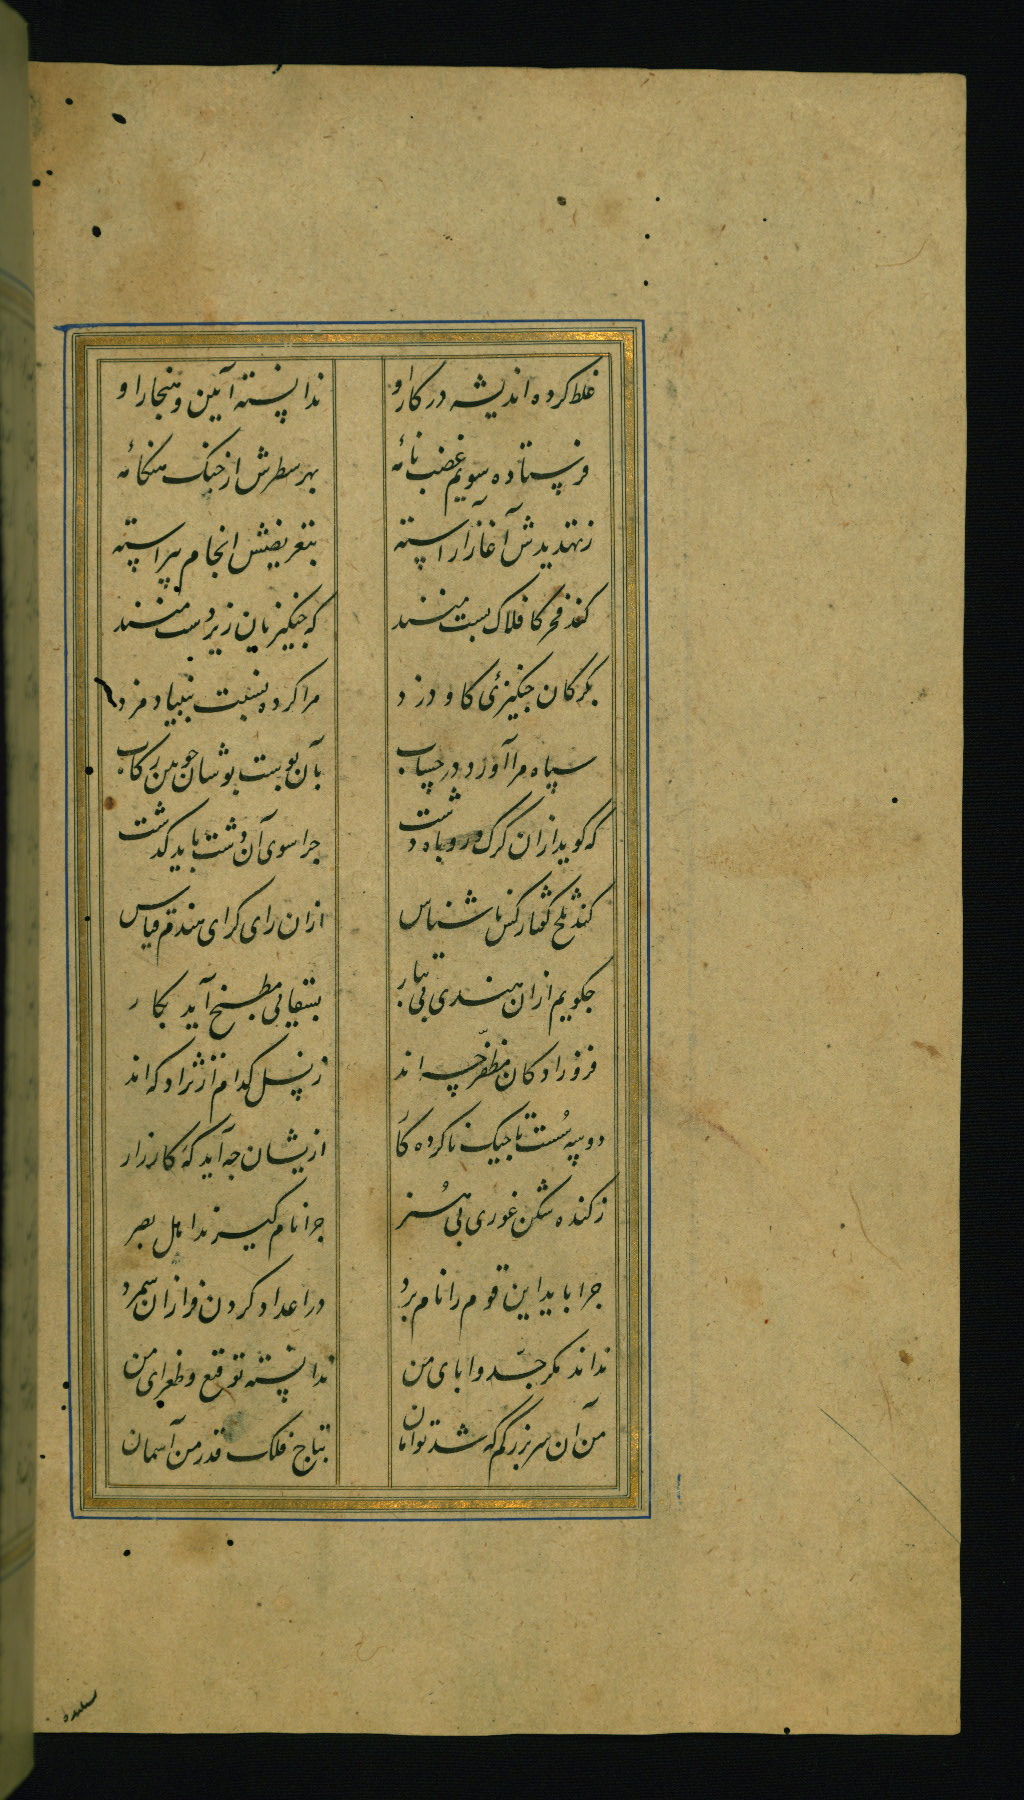 غلط کرده اندیشه در کار او ندانسته آیین و هنجار او
فرستاده سویم غضب نامهٔ بهر سطرش از جنک هنکامهٔ
ز تهدیدش آغاز آراسته بتعریضش انجام پیراسته
کند فخر کافلاک پست منند که چنکیزیان زیردست منند
بکرکان چنکیزئی کاو درزد مرا کرده نسبت ببنیاد مزد
سپاه مرا آورد در حساب بآن پوست پوشان چوبین رکاب
که کوید ازان کرک و روباه دشت چرا سوی آن دشت باید کذشت
کند تلخ کفتار کس ناشناس ازان رای کرای هندم قیاس
چکویم ازان هندی بی تبار بسقایی مطبخ آید بکار
فرو زادکان مظفر چه اند ز نسل کدام از نژاد که اند
دو سه سست تاجیک ناکرده کار ازیشان چه آید که کارزار
ز کنده شکن غوری بی هنر چرا نام کیرند اهل بصر
چرا باید این قوم را نام برد در اعداد کردن فرازان سمرد
نداند مکر جد و ابای من ندانسته توقیع و طغرای من
من آن سر بزرکم که شد توامان بتاج فلک قدر من آسمان